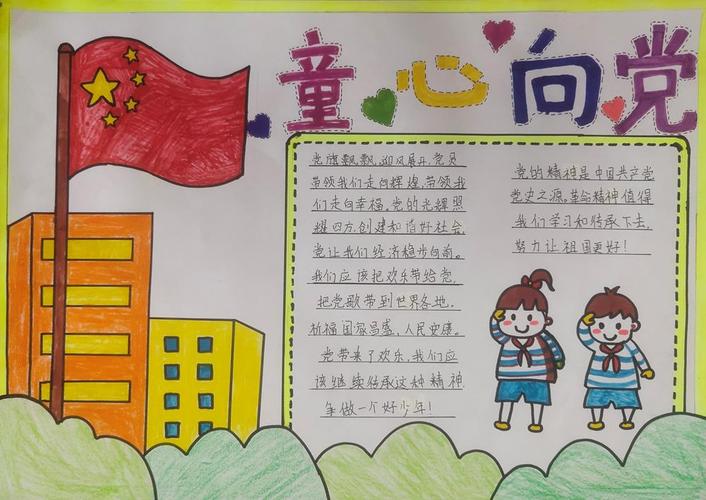 童心向党
党旗飘飘,迎风展开,党员
带领我们走向辉煌,带领我
们走向幸福,党的光辉照
耀四方,创建和谐好社会,
党让我们经济稳步向前。
我们应该把欢乐带给党,
把党歌带到世界各地。
祈福国旅昌盛,人民安康。
党带来了欢乐,我们应
该继续传承这种精神
争做一个好少年!
党的精神是中国共产党
党史之源。革命精神值得
我们学习和传承下去,
努力让祖国更好!